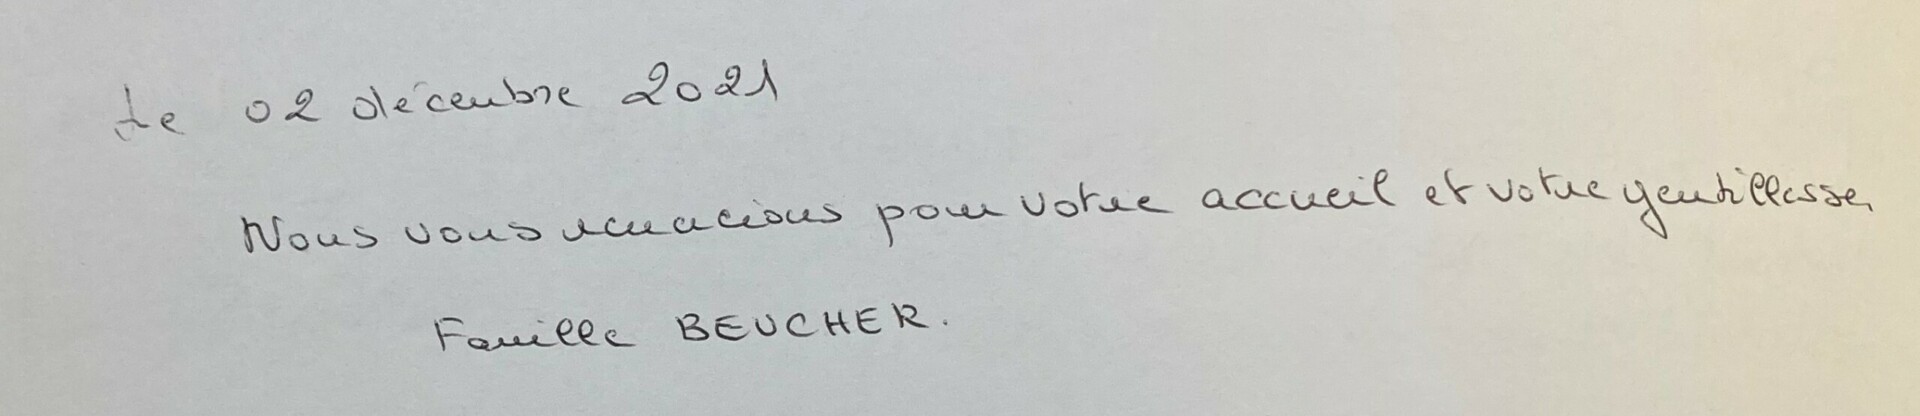 Le 02 décembre 2021
Nous vous remercions pour votre accueil et votre gentillesse,
Famille BEUCHER.